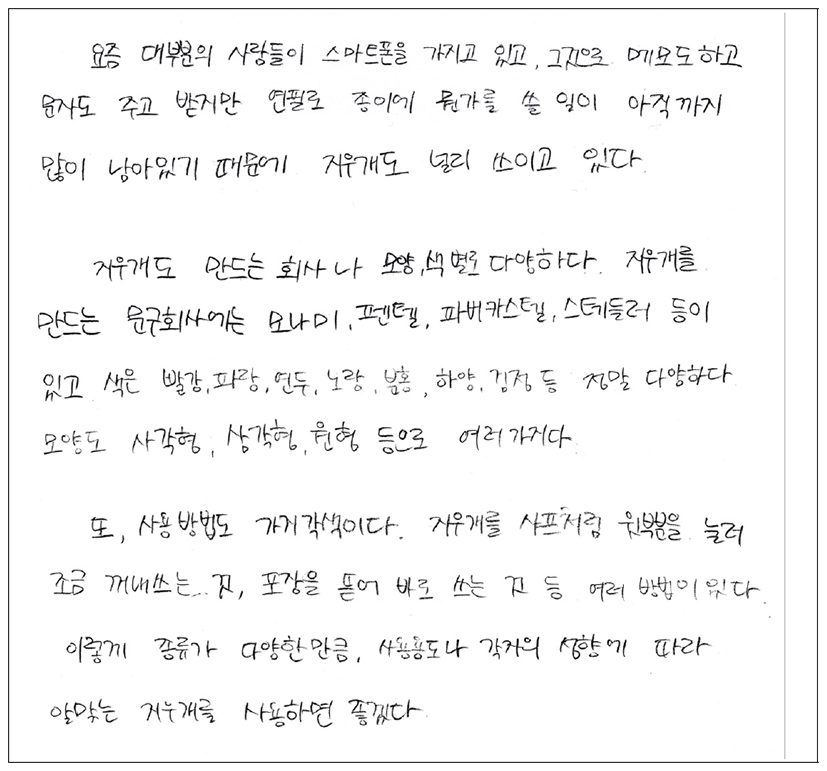 요즘 대부분의 사람들이 스마트폰을 가지고 있고, 그것으로 메모도하고
문자도 주고 받지만 연필로 종이에 뭔가를 쓸 일이 아직까지
많이 남아있기 때문에 지우개도 널리 쓰이고 있다.
지우개도 만드는 회사나 모양, 색 별로 다양하다. 지우개를
만드는 문구회사에는 모나미, 펜텔, 파버카스텔, 스테들러 등이
있고 색은 빨강, 파랑, 연두, 노랑, 분홍, 하양, 검정 등 정말 다양하다
모양도 사각형, 삼각형, 원형 등으로 여러가지다.
또, 사용방법도 가지각색이다. 지우개를 샤프처럼 윗부분을 눌러
조금 꺼내쓰는 것, 포장을 뜯어 바로 쓰는 것 등 여러 방법이 있다.
이렇게 종류가 다양한만큼, 사용용도나 각자의 성향에 따라
알맞는 지우개를 사용하면 좋겠다.